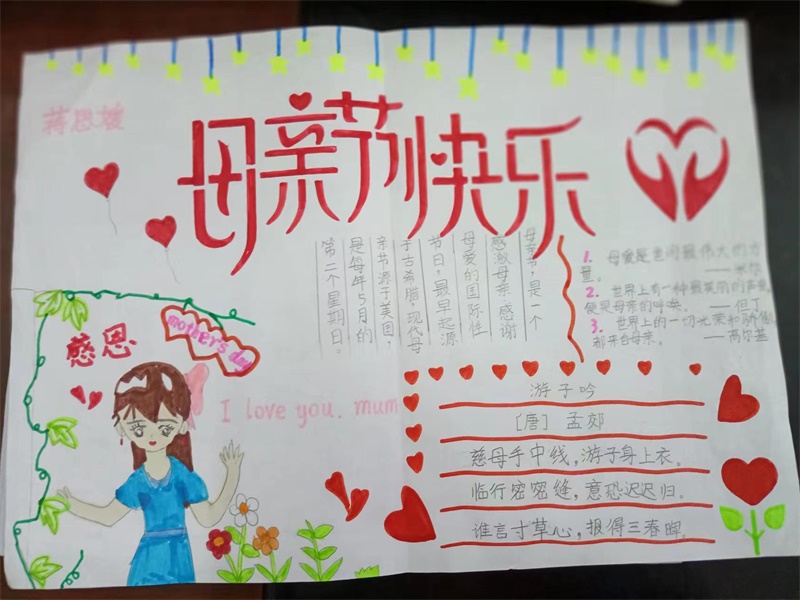 母亲节快乐
蒋思媛
母亲节,是一个
感激母亲,感谢
母爱的国际性
节日,最早起源
于古希腊,现代母
亲节源于美国,
是每年5月的
第二个星期日。
1. 母爱是世间最伟大的力
量。 ——米尔
2. 世界上有一种最美丽的声音,
便是母亲的呼唤。 ——但丁
3. 世界上的一切光荣和骄傲,
都来自母亲。 ——高尔基
感恩
mother's day
I love you. mum
游子吟
[唐] 孟郊
慈母手中线,游子身上衣。
临行密密缝,意恐迟迟归。
谁言寸草心,报得三春晖。